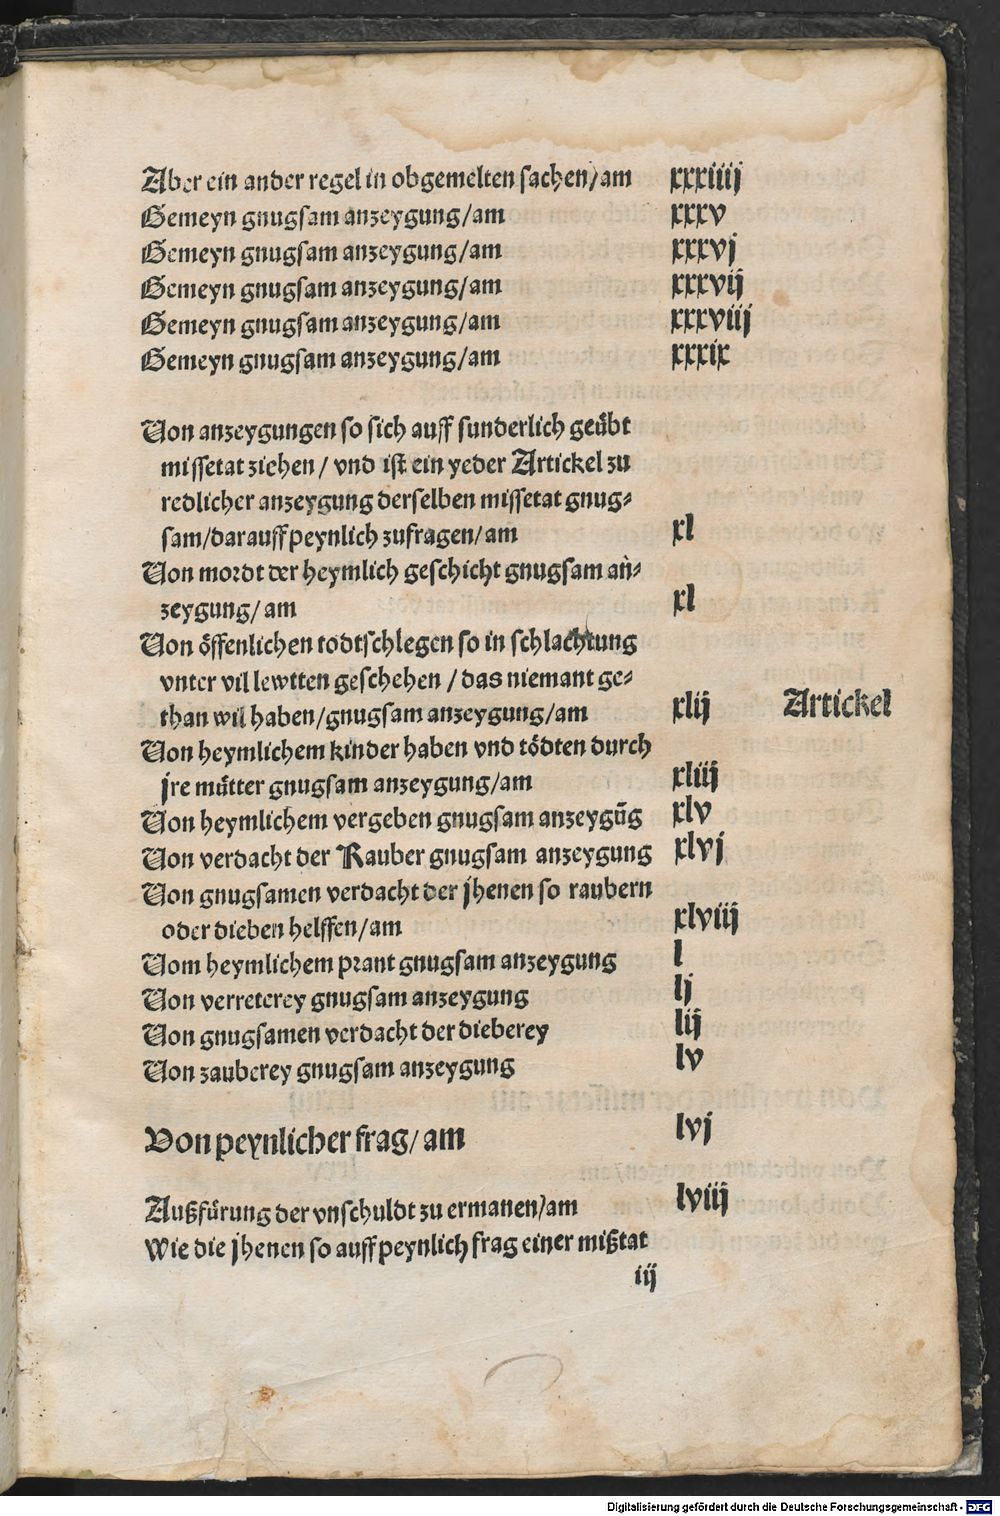 Aber ein ander regel in obgemelten sachen/am xxxiiij
Gemeyn gnugsam anzeygung/am xxxv
Gemeyn gnugsam anzeygung/am xxxvj
Gemeyn gnugsam anzeygung/am xxxvij
Gemeyn gnugsam anzeygung/am xxxviij
Gemeyn gnugsam anzeygung/am xxxix
Von anzeygungen so sich auff sunderlich geübt
missetat ziehen/ vnd ist ein yeder Artickel zu
redlicher anzeygung derselben missetat gnug-
sam/darauff peynlich zufragen/am xl
Von mordt der heymlich geschicht gnugsam an-
zeygung/am xl
Von öffenlichen todtschlegen so in schlachtung
vnter vil lewtten geschehen/das niemant ge-
than wil haben/gnugsam anzeygung/am xlij Artickel
Von heymlichem kinder haben vnd tödten durch
jre mütter gnugsam anzeygung/am xliij
Von heymlichem vergeben gnugsam anzeygūg xlv
Von verdacht der Rauber gnugsam anzeygung xlvj
Von gnugsamen verdacht der jhenen so raubern
oder dieben helffen/am xlviij
Vom heymlichem prant gnugsam anzeygung l
Von verreterey gnugsam anzeygung lj
Von gnugsamen verdacht der dieberey lij
Von zauberey gnugsam anzeygung lv
Von peynlicher frag/am lvj
Außfürung der vnschuldt zu ermanen/am lviij
Wie die jhenen so auff peynlich frag einer mißtat
iij
Digitalisierung gefördert durch die Deutsche Forschungsgemeinschaft - DFG